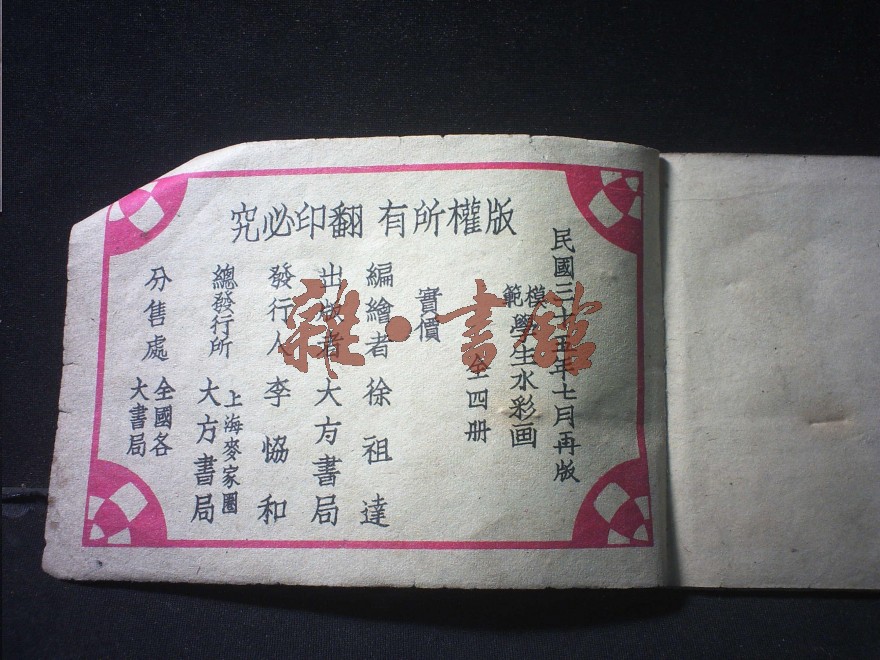 版權所有 翻印必究
民國三十五年七月再版
模範學生水彩画
全四册
實價
編繪者 徐祖達
出版者 大方書局
發行人 李恊和
總發行所 上海麥家圈 大方書局
分售處 全國各大書局
雜·書館